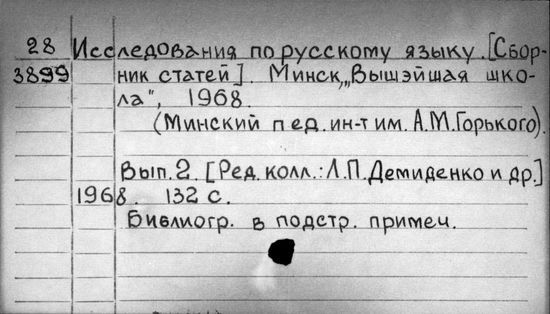 28 Исследования по русскому языку. [Сбор-
3899 ник статей]. Минск, „Вышэйшая шко-
ла", 1968.
(Минский пед. ин-т им. А.М.Горького).
Вып. 2. [Ред. колл.: Л.П.Демиденко и др.]
1968. 132 с.
Библиогр. в подстр. примеч.